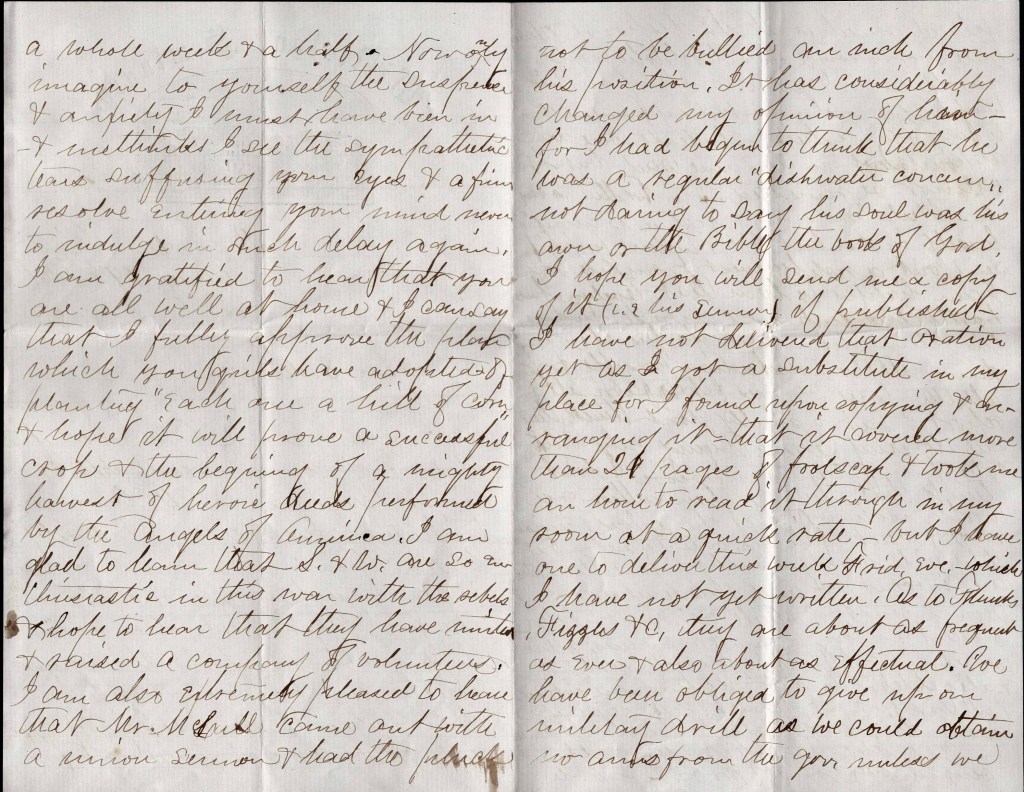 a whole week & a half. Now only
imagine to yourself the suspense
& anxiety I must have been in
& methinks I see the sympathetic
tears suffusing your eyes & a firm
resolve entering your mind never
to indulge in such delay again.
I am gratified to hear that you
are all well at home & I can say
that I fully approve the plan
which you girls have adopted of
planting "Each one a hill of corn"
& hope it will prove a successful
crop & the begining of a mighty
harvest of heroic deeds performed
by the Angels of America. I am
glad to learn that S. & W. are so en
thusiastic in this war with the rebels
& hope to hear that they have united
& raised a company of volunteers.
I am also extremely pleased to hear
that Mr. came out with
a union sermon & had the pluck
not to be bullied an inch from
his position. It has considerably
changed my opinion of him –
for I had begun to think that he
was a regular "dishwater concern"
not daring to say his soul was his
own or the Bible the book of God.
I hope you will send me a copy
of it (i.e his sermon) if published –
I have not delivered that oration
yet as I got a substitute in my
place for I found upon copying & ar-
ranging it – that it covered more
than 21 pages of foolscap & took me
an hour to read it through in my
room at a quick rate – but I have
one to deliver this week Frid. Eve. – which
I have not yet written. As to
&C, they are about as frequent
as Ever & also about as Effectual. We
have been obliged to give up our
military drill as we could obtain
no arms from the gov. unless we